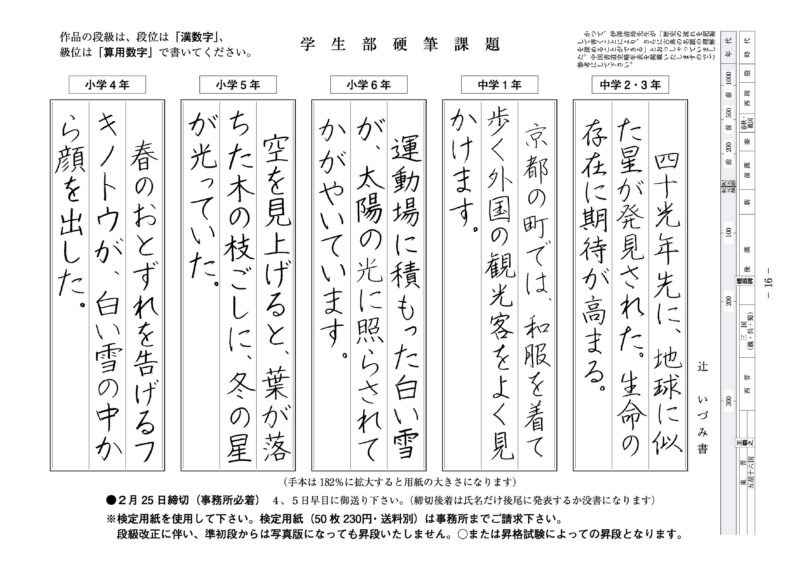 作品の段級は、段位は「漢数字」、
級位は「算用数字」で書いてください。
学生部硬筆課題
小学4年
春のおとずれを告げるフ
キノトウが、白い雪の中か
ら顔を出した。
小学5年
空を見上げると、葉が落
ちた木の枝ごしに、冬の星
が光っていた。
小学6年
運動場に積もった白い雪
が、太陽の光に照らされて
かがやいています。
中学1年
京都の町では、和服を着て
歩く外国の観光客をよく見
かけます。
中学2・3年
四十光年先に、地球に似
た星が発見された。生命の
存在に期待が高まる。
辻 いづみ書
(手本は182%に拡大すると用紙の大きさになります)
●2月25日締切(事務所必着) 4、5日早目に御送り下さい。(締切後着は氏名だけ後尾に発表するか没書になります)
※検定用紙を使用して下さい。検定用紙(50枚230円・送料別)は事務所までご請求下さい。
段級改正に伴い、準初段からは写真版になっても昇段いたしません。○または昇格試験によっての昇段となります。
年代
前 1000
前 500
前 200
100
200
300
時代
殷
西周
春秋・戦国
秦
前漢
新
後漢
三国
(魏・呉・蜀)
西晋
東晋
五胡十六国
– 16 –